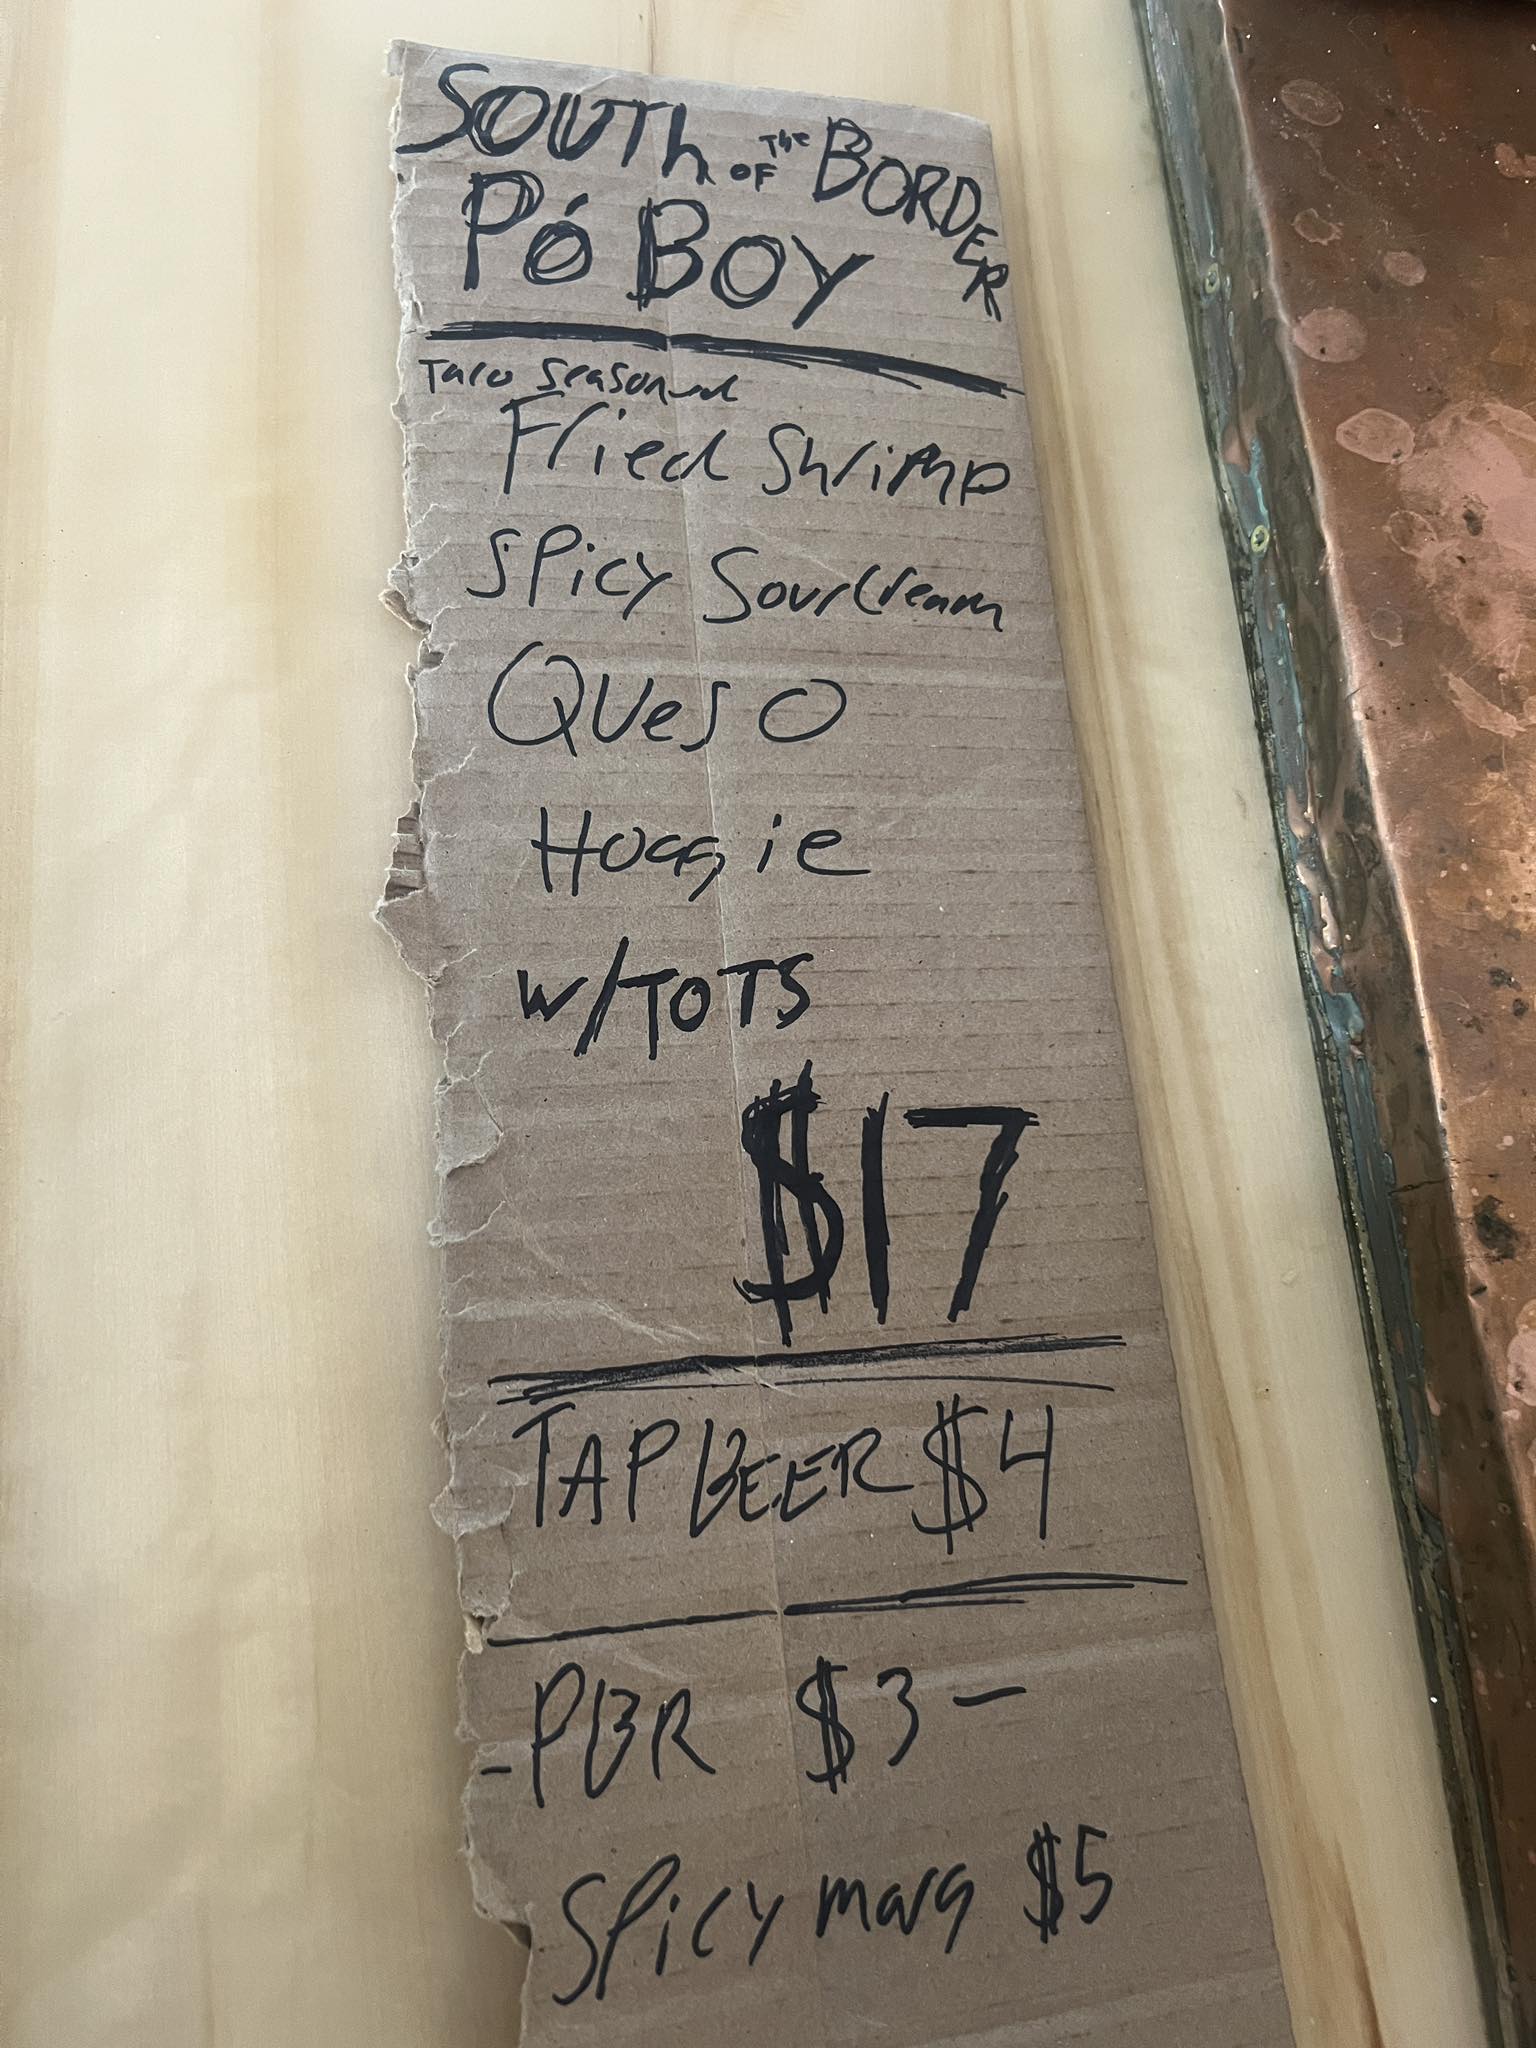 SOUTH OF The BORDER
PÓ BOY
Taco Seasoned
Fried Shrimp
Spicy Sour Cream
Queso
Hoggie
W/TOTS
$17
TAP BEER $4
-PBR $3-
Spicy marg $5